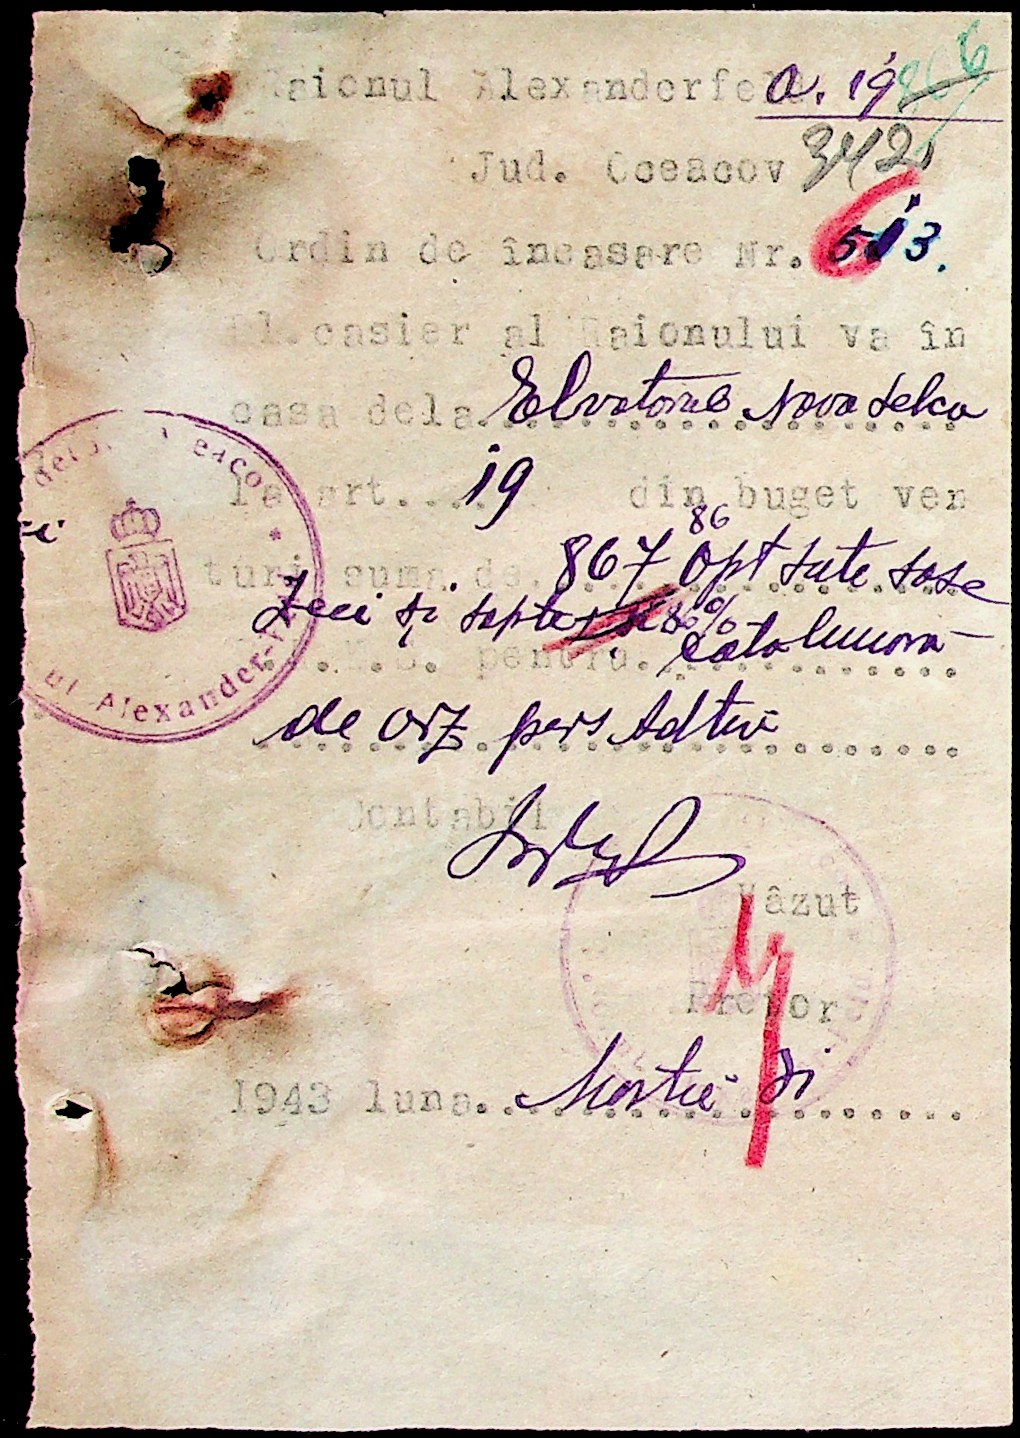 Raionul Alexanderfeld a. 19
Jud. Oceacov 342
Ordin de încasare Nr. 513.
Dl. casier al Raionului va în
casa dela Elvatorul Novoselca
la art. 19 din buget ven
turi suma de 867 86 Opt sute sase
Zeci și sapte 86%
pentru cota
de orz pers
Contabil
Văzut
Pretor
1943 luna Martie
Alexander-